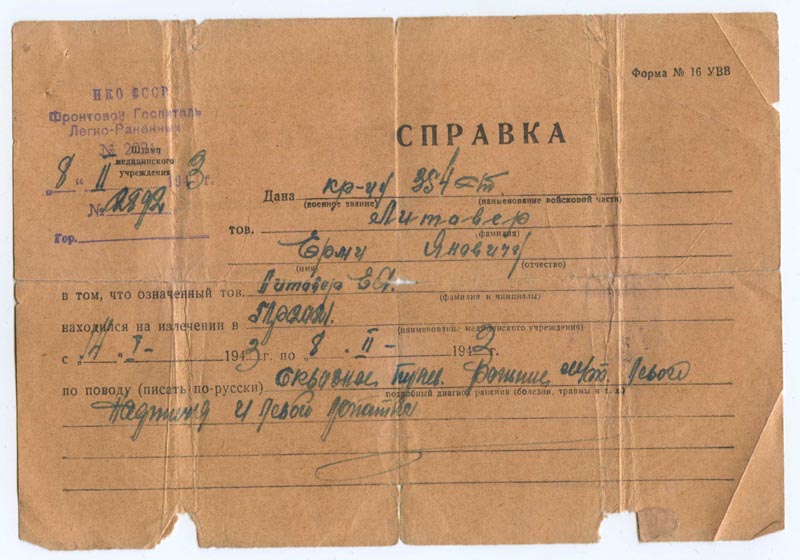 Форма № 16 УВВ
НКО СССР
Фронтовой Госпиталь
Легко-Раненных
№
СПРАВКА
Штамп
медицинского
учреждения
„8“ II 1943г.
№ 2892
Гор.
Дана кр-цу 354
(военное звание) (наименование войсковой части)
тов. Литавер
(фамилия)
Ерми Яновичу
(имя) (отчество)
в том, что означенный тов. Литавер Е.Я.
(фамилия и инициалы)
находился на излечении в
(наименование медицинского учреждения)
с „14“ I- 1943г. по „8“ II- 1943г.
по поводу (писать по-русски) Сквозное пулев. ранение левого
подробный диагноз ранения (болезни, травмы и т. д.)
и левой лопатки